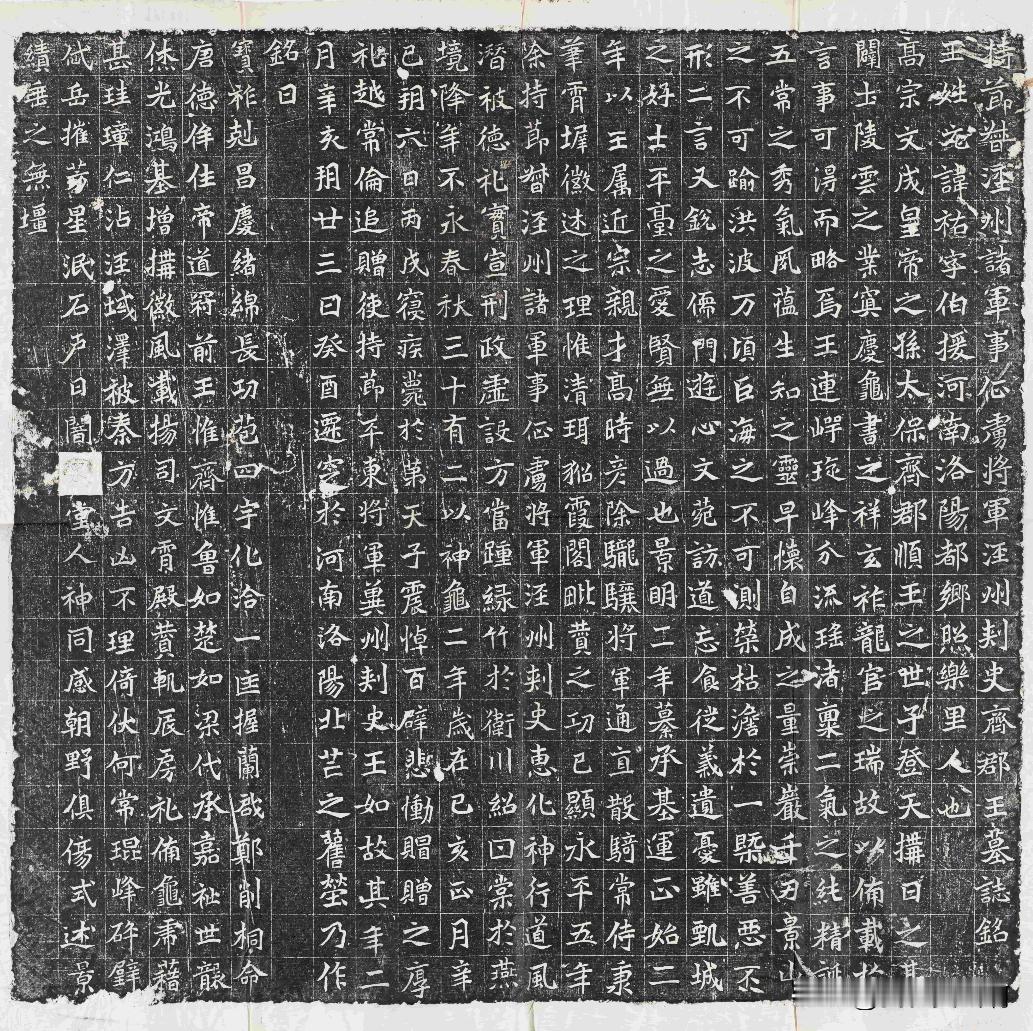 持節督涇州諸軍事征虜將軍涇州刾史齊郡王墓誌銘
王姓元諱祐字伯援河南洛陽都鄉照樂里人也
高宗文成皇帝之孫太保齊郡順王之世子登天構日之基
闡士陵雲之業寔慶龜書之祥玄祚龍官之瑞故以俻載於
言事可淂而略焉王連崿琁峰分流瑤渚稟二氣之純精誕
五常之秀氣夙蘊生知之靈早懷自成之量崇巖千刃景山
之不可踰洪波万頃巨海之不可測榮枯澹於一槩善惡不
形二言又銳志儒門遊心文苑訪道忘食從義遺憂雖甄城
之好士平臺之愛賢無以過也景明二年纂承基運正始二
年以王屬近宗親才高時彥除驪驤將軍通直散騎常侍秉
筆霄墀徽述之理惟清珥貂霞閣毗賛之功已顯永平五年
除持節督涇州諸軍事征虜將軍涇州刾史惠化神行道風
潛被德礼實宣刑政虛設方當踵綠竹於衛川紹曰棠於燕
境降年不永春秋三十有二以神龜二年歲在己亥正月辛
巳朔六日丙戌寢疾薨於第天子震悼百辟悲慟賵贈之厚
礼越常倫追贈使持節平東將軍冀州刾史王如故其年二
月辛亥朔廿三日癸酉遷窆於河南洛陽北芒之舊塋乃作
銘曰
寶祚剋昌慶緒綿長功苞四宇化洽一匡握蘭啟鄭削桐命
唐德侔往帝道冠前王惟齊惟魯如楚如梁代承嘉祉世襲
休光鴻基增構徽風載揚司文霄殿賛軌辰房礼俻龜黼藉
甚珪璋仁沾涇域澤被秦方吉凶不理倚伏何常琨峰碎璧
岱岳摧芳星泯石戶日闇堂人神同感朝野俱傷式述景
績垂之無壃